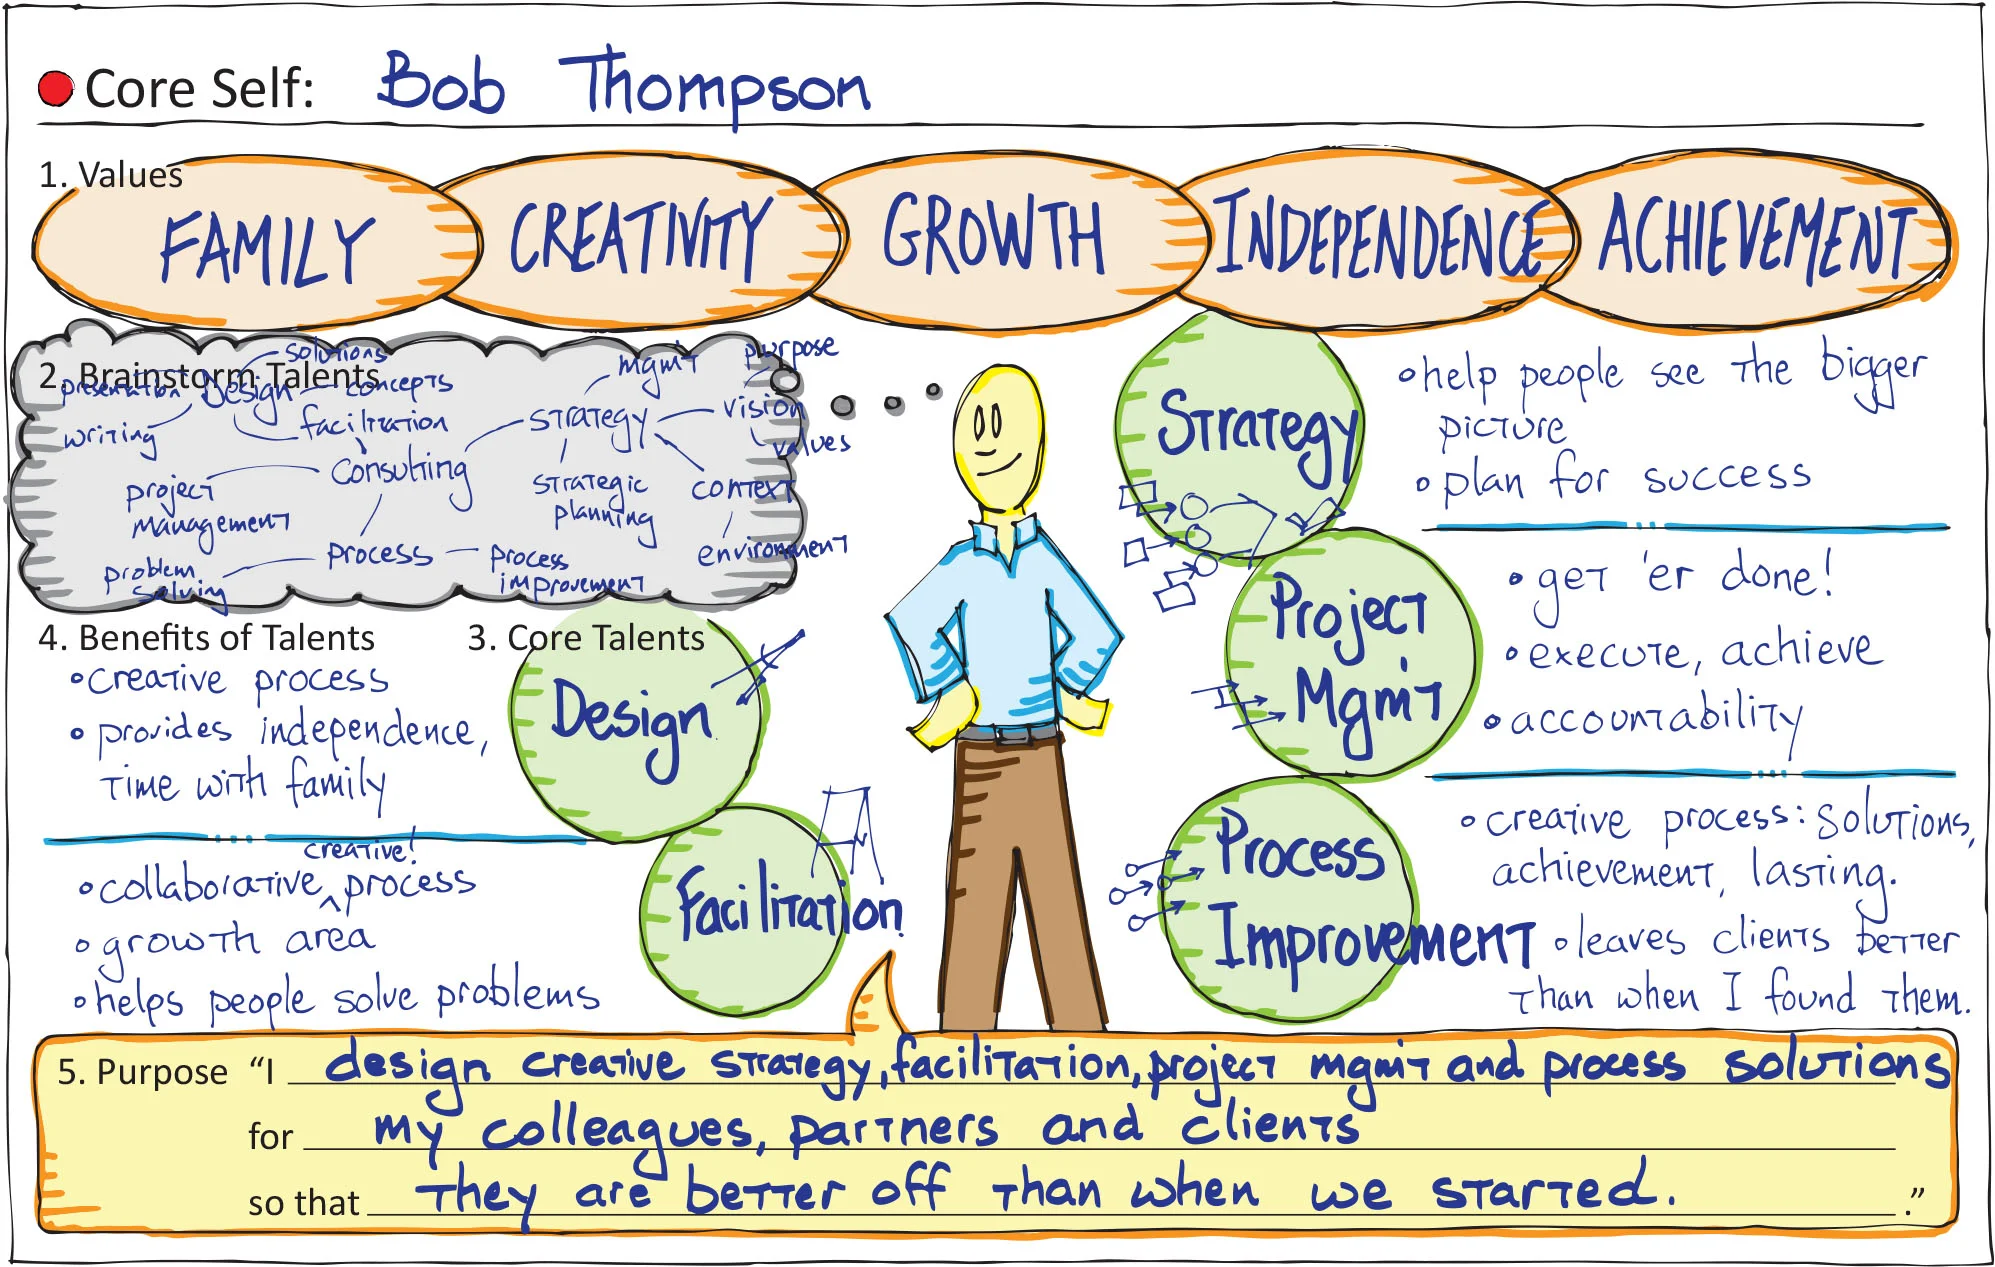 Core Self: Bob Thompson
1. Values
FAMILY
CREATIVITY
GROWTH
INDEPENDENCE
ACHIEVEMENT
2. Brainstorm Talents
solutions
presentation
Design
concepts
writing
facilitation
Consulting
project
management
problem
solving
process
process
improvement
strategy
mgm't
purpose
vision
values
strategic
planning
context
environment
3. Core Talents
Design
Facilitation
Strategy
Project
Mgm't
Process
Improvement
4. Benefits of Talents
• creative process
• provides independence,
time with family
creative!
• collaborative ^ process
• growth area
• helps people solve problems
• help people see the bigger
picture
• plan for success
• get 'er done!
• execute, achieve
• accountability
• creative process: solutions,
achievement, lasting.
• leaves clients better
than when I found them.
5. Purpose “I design creative strategy, facilitation, project mgm't and process solutions
for my colleagues, partners and clients
so that they are better off than when we started. .”